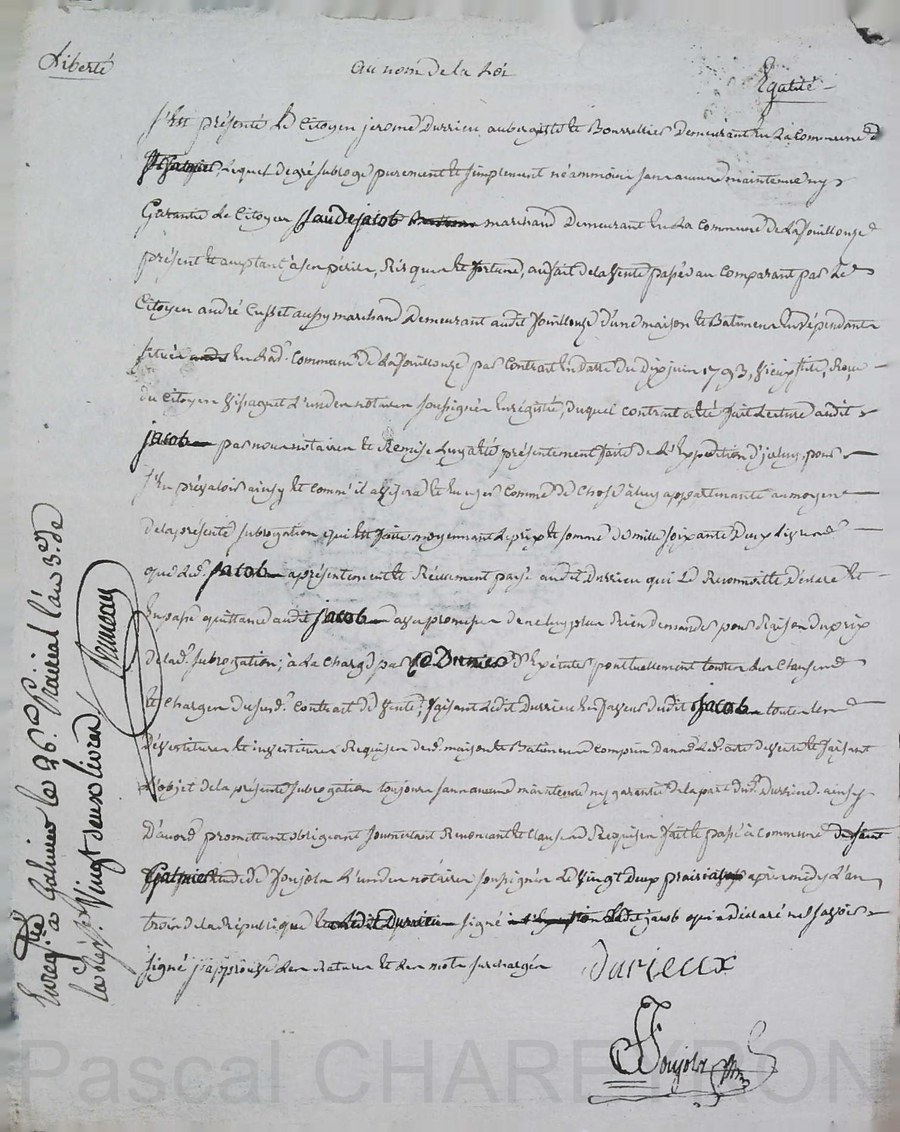 Liberté
au nom de la Loi
Egalité
S'est présenté Le Citoyen jerome Durrieu, aubergiste et Bourrellier Demeurant En La Commune de
Lequel de gré subroge purement et simplement néammoins sans aucune maintenue ny
Garantie Le Citoyen jacob marchand Demeurant En La Commune de La fouillouze
présent et acceptant à ses périls, Risques et fortune, au fait de la vente passée au Comparant par Le
Citoyen andré Cusset aussy marchand Demeurant audit fouillouze d'une maison et Batimens En dépendants
située En lad. Commune de La fouillouze par Contrat En datte du dix juin 1793, vieux stile, Reçu
du Citoyen L'un des notaires soussignés Enregistré, duquel contrat a été fait Lecture audit
jacob par nous notaires et Remise Luy a été présentement faite de L'Expédition d'iceluy, pour
s'En prévaloir ainsy et comme il avisera et En user comme de Chose à luy appartenante au moyen
de la présente subrogation qui Est faite moyennant Le prix et somme de mille soixante Deux Livres
que Led. jacob a présentement et Réellement payé audit Durrieu qui Le Reconnoit Déclare et
En passe quittance audit jacob avec promesse de ne luy plus Rien demander pour Raison du prix
de lad. subrogation; à La Charge par Led. d'Exécuter ponctuellement toutes Les Clauses
et Charges du susd. Contrat de vente; faisant Ledit Durrieu En faveur dudit jacob toutes Les
Dévestitures et investitures Requises desd. maison et Batimens compris dans Led. acte de vente et faisant
L'objet de la présente subrogation toujours sans aucune maintenue ny garantie de la part dud. Durrieu. ainsy
D'accord promettant obligeant soumettant Renonçant et Clauses Requises fait et passé à commune de saint
Galmier Etude de Soujols L'un des notaires soussignés Le vingt deux prairial après medy L'an
trois de la République Ledit Durrieu signé Ledit jacob qui a déclaré ne savoir
signé j'approuve Les Ratures et Les mots surchargés
Durieux
Soujols
Enregistré à Galmier le 26 Prairial l'an 3.e de
la Rép. Vingt deux livres
Pascal CHAREYRON